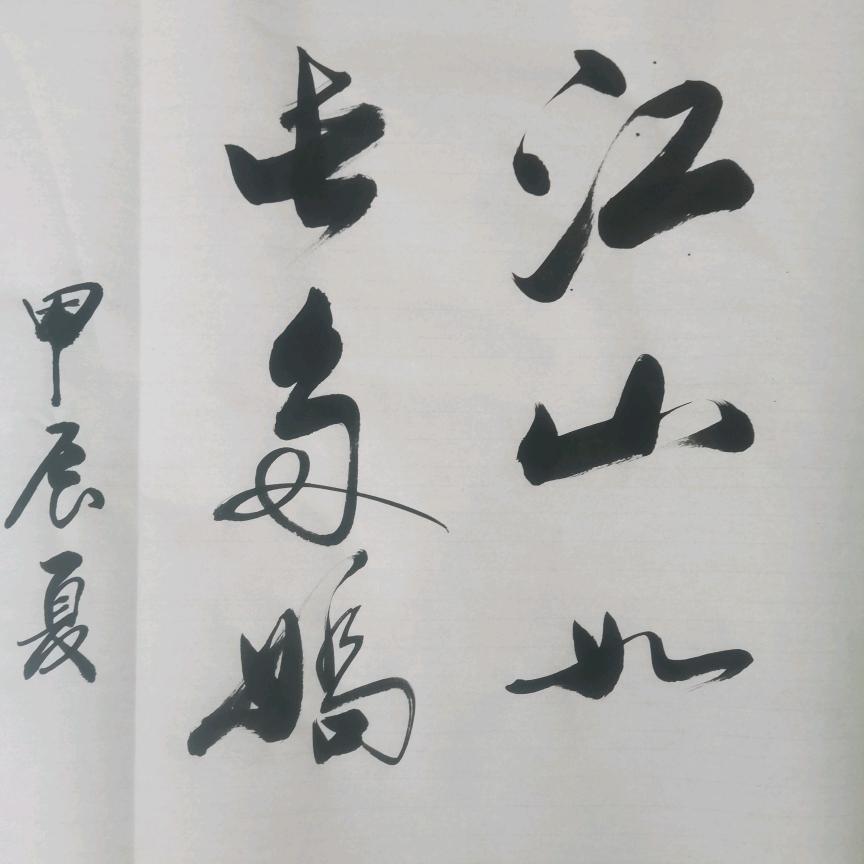 江山如
此多嬌
甲辰夏